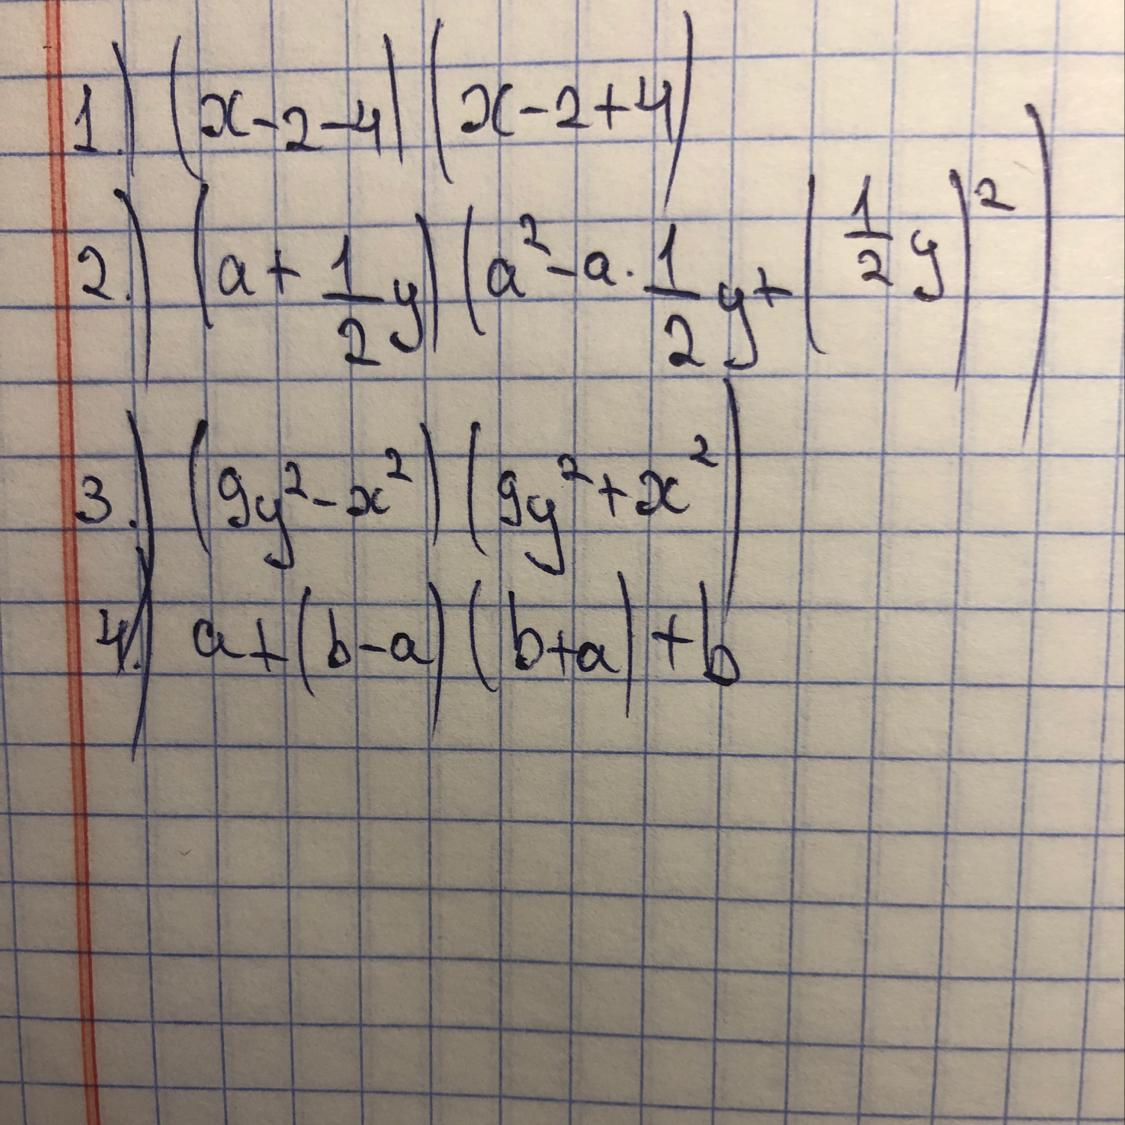 1.) (x-2-4) (x-2+4)
2.) (a+ 1/2 y) (a²-a·1/2 y+(1/2 y)²)
3.) (9y²-x²) (9y²+x²)
4.) a+(b-a) (b+a)+b